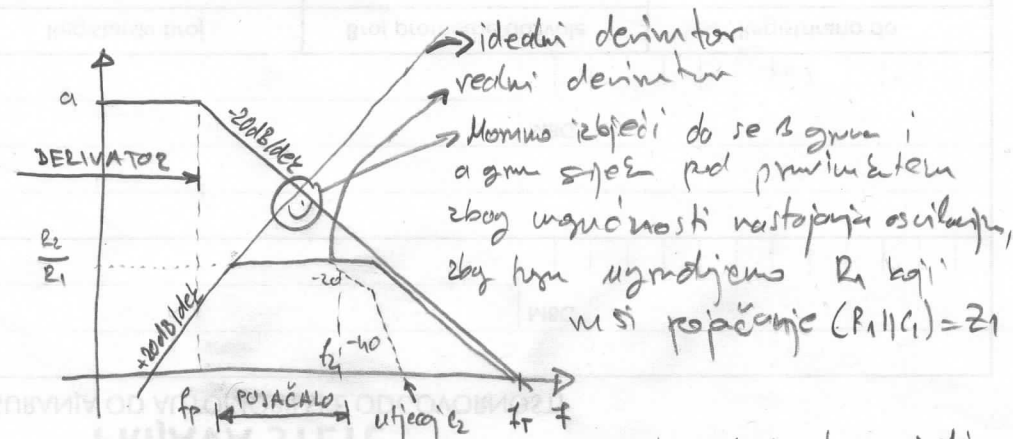 idealni derivator
realni derivator
Moramo izbjeći da se B grana i
a gran siječe pod pravim kutem
zbog mogućnosti nastajanja oscilacija,
zbog ugradjujemo R1 koji
pojačanje (R1||C1)=Z1
a
-20dB/dek
DERIVATOR
R2
R1
+20dB/dek
-20
-40
f2
fp
POJAČALO
utjecaj C2
fT
f